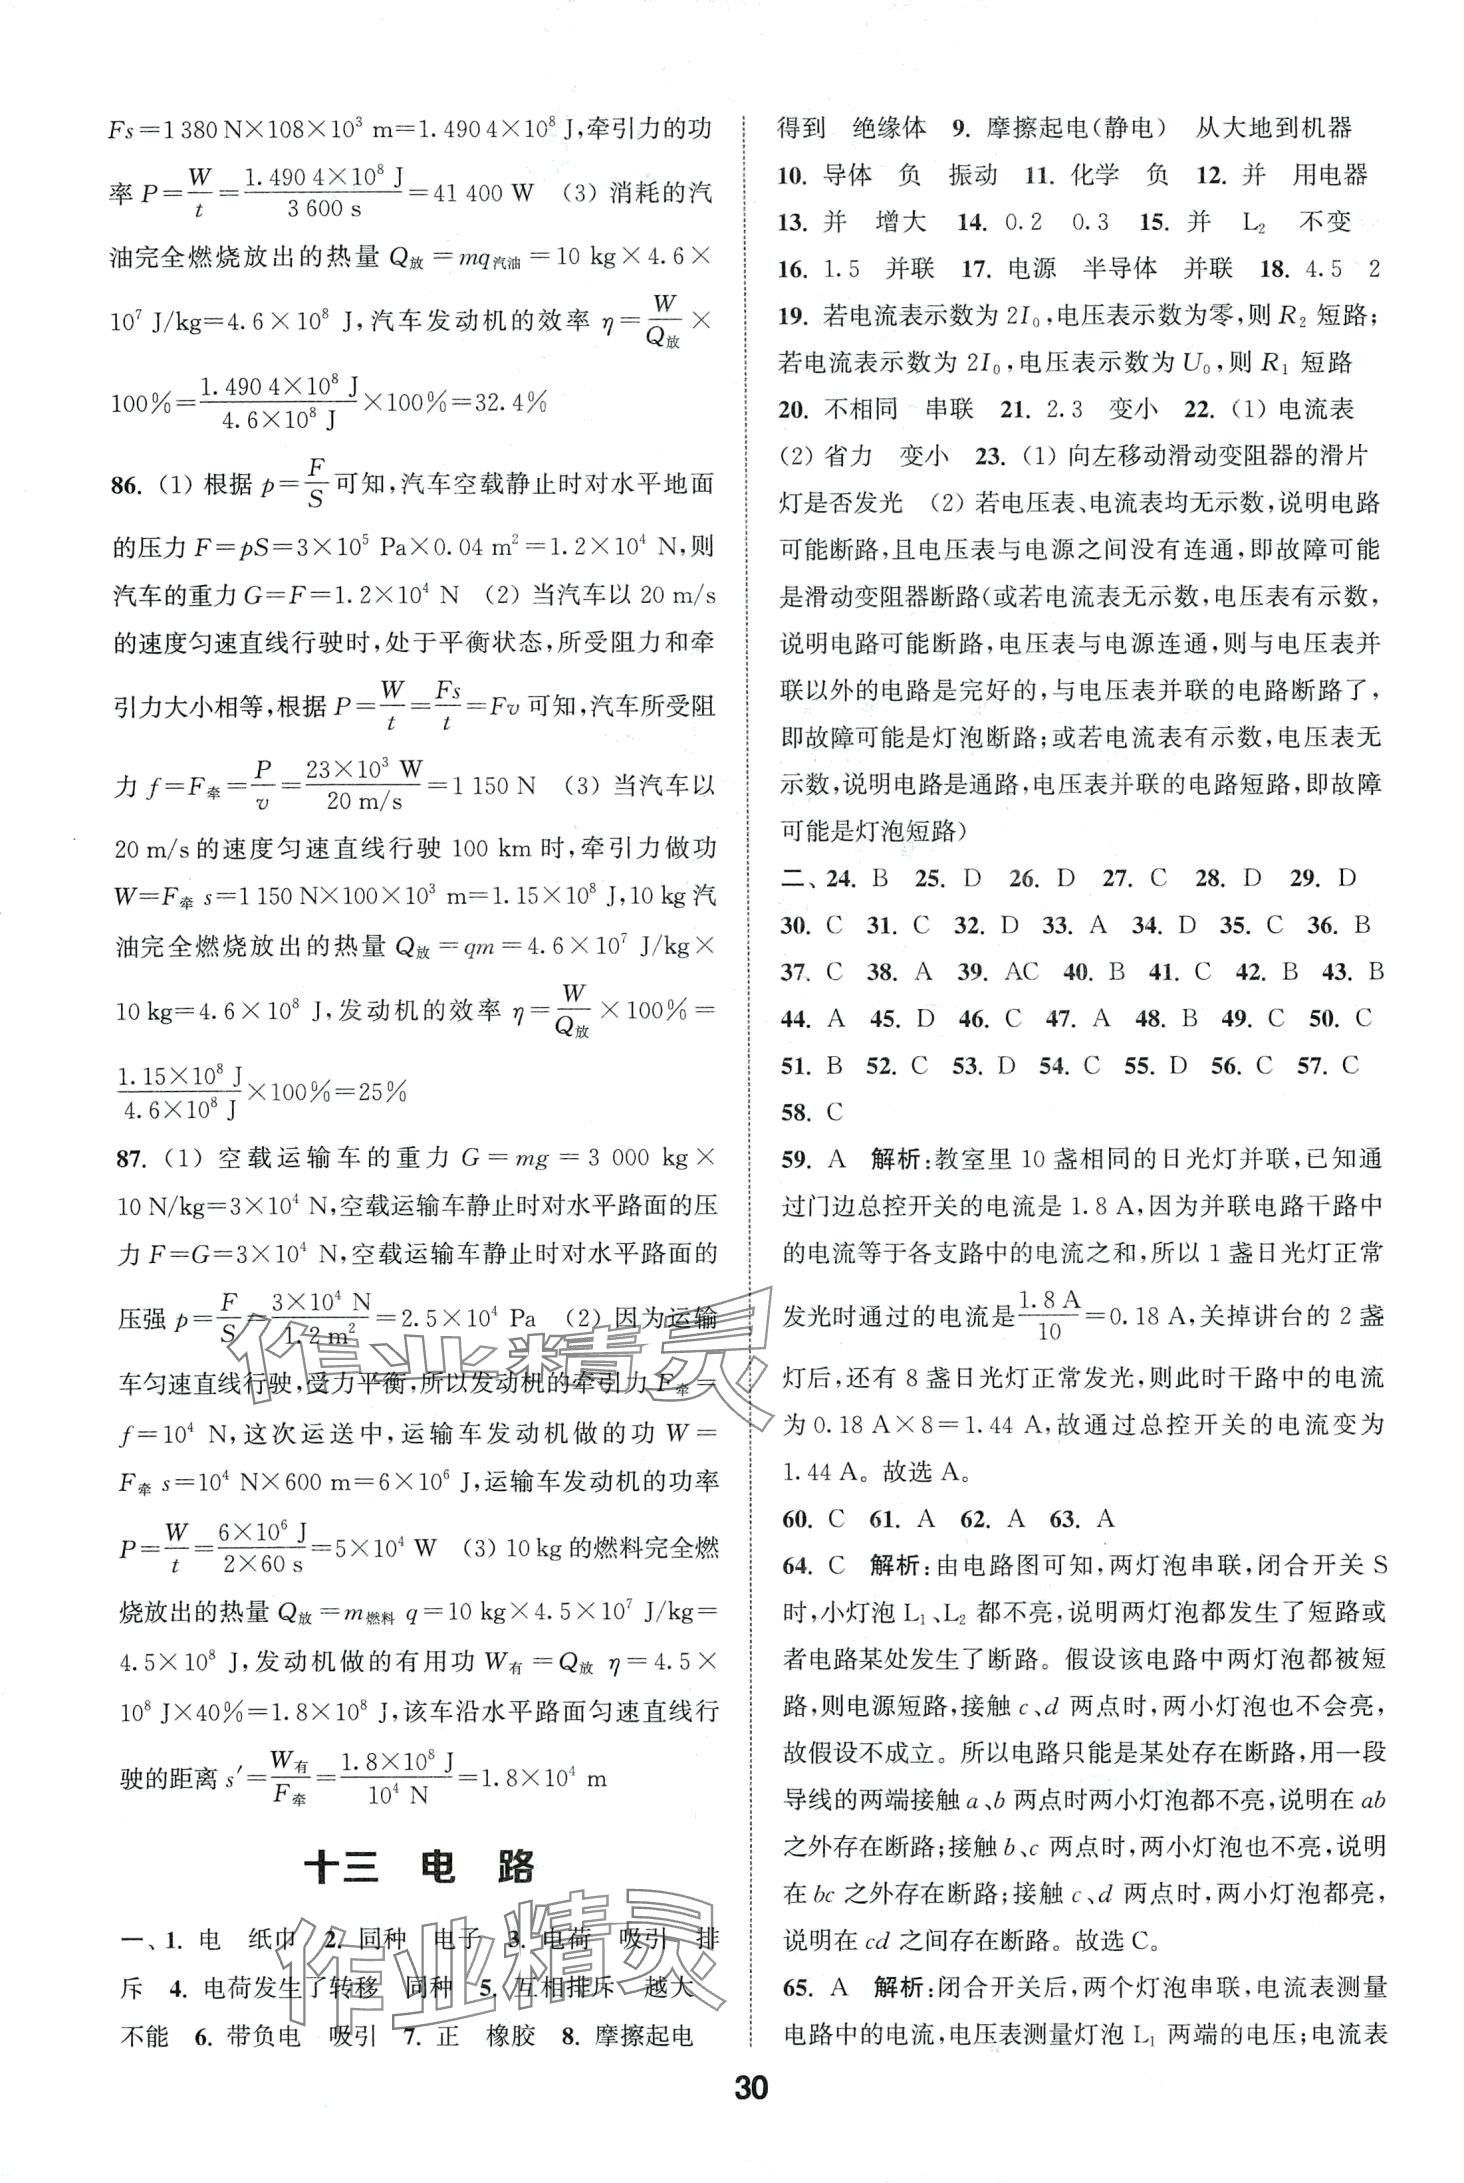 Fs=1 380 N×108×10³ m=1.490 4×10⁸ J,牵引力的功
率 P=W/t=1.490 4×10⁸ J/3 600 s=41 400 W (3) 消耗的汽
油完全燃烧放出的热量 Q放=mq汽油=10 kg×4.6×
10⁷ J/kg=4.6×10⁸ J,汽车发动机的效率 η=W/Q放×
100%=1.490 4×10⁸ J/4.6×10⁸ J×100%=32.4%
86. (1) 根据 p=F/S可知,汽车空载静止时对水平地面
的压力 F=pS=3×10⁵ Pa×0.04 m²=1.2×10⁴ N,则
汽车的重力 G=F=1.2×10⁴ N (2) 当汽车以 20 m/s
的速度匀速直线行驶时,处于平衡状态,所受阻力和牵
引力大小相等,根据 P=W/t=Fs/t=Fv 可知,汽车所受阻
力 f=F牵=P/v=23×10³ W/20 m/s=1 150 N (3) 当汽车以
20 m/s 的速度匀速直线行驶 100 km 时,牵引力做功
W=F牵 s=1 150 N×100×10³ m=1.15×10⁸ J,10 kg 汽
油完全燃烧放出的热量 Q放=qm=4.6×10⁷ J/kg×
10 kg=4.6×10⁸ J,发动机的效率 η=W/Q放×100%=
1.15×10⁸ J/4.6×10⁸ J×100%=25%
87. (1) 空载运输车的重力 G=mg=3 000 kg×
10 N/kg=3×10⁴ N,空载运输车静止时对水平路面的压
力 F=G=3×10⁴ N,空载运输车静止时对水平路面的
压强 p=F/S=3×10⁴ N/1.2 m²=2.5×10⁴ Pa (2) 因为运输
车匀速直线行驶,受力平衡,所以发动机的牵引力 F牵=
f=10⁴ N,这次运送中,运输车发动机做的功 W=
F牵 s=10⁴ N×600 m=6×10⁶ J,运输车发动机的功率
P=W/t=6×10⁶ J/2×60 s=5×10⁴ W (3) 10 kg 的燃料完全燃
烧放出的热量 Q放=m燃料 q=10 kg×4.5×10⁷ J/kg=
4.5×10⁸ J,发动机做的有用功 W有=Q放 η=4.5×
10⁸ J×40%=1.8×10⁸ J,该车沿水平路面匀速直线行
驶的距离 s′=W有/F牵=1.8×10⁸ J/10⁴ N=1.8×10⁴ m
十三 电 路
一、1. 电 纸巾 2. 同种 电子 3. 电荷 吸引 排
斥 4. 电荷发生了转移 同种 5. 互相排斥 越大
不能 6. 带负电 吸引 7. 正 橡胶 8. 摩擦起电
得到 绝缘体 9. 摩擦起电(静电) 从大地到机器
10. 导体 负 振动 11. 化学 负 12. 并 用电器
13. 并 增大 14. 0.2 0.3 15. 并 L₂ 不变
16. 1.5 并联 17. 电源 半导体 并联 18. 4.5 2
19. 若电流表示数为 2I₀,电压表示数为零,则 R₂ 短路;
若电流表示数为 2I₀,电压表示数为 U₀,则 R₁ 短路
20. 不相同 串联 21. 2.3 变小 22. (1) 电流表
(2) 省力 变小 23. (1) 向左移动滑动变阻器的滑片
灯是否发光 (2) 若电压表、电流表均无示数,说明电路
可能断路,且电压表与电源之间没有连通,即故障可能
是滑动变阻器断路(或若电流表无示数,电压表有示数,
说明电路可能断路,电压表与电源连通,则与电压表并
联以外的电路是完好的,与电压表并联的电路断路了,
即故障可能是灯泡断路;或若电流表有示数,电压表无
示数,说明电路是通路,电压表并联的电路短路,即故障
可能是灯泡短路)
二、24. B 25. D 26. D 27. C 28. D 29. D
30. C 31. C 32. D 33. A 34. D 35. C 36. B
37. C 38. A 39. AC 40. B 41. C 42. B 43. B
44. A 45. D 46. C 47. A 48. B 49. C 50. C
51. B 52. C 53. D 54. C 55. D 56. C 57. C
58. C
59. A 解析:教室里 10 盏相同的日光灯并联,已知通
过门边总控开关的电流是 1.8 A,因为并联电路干路中
的电流等于各支路中的电流之和,所以 1 盏日光灯正常
发光时通过的电流是1.8 A/10=0.18 A,关掉讲台的 2 盏
灯后,还有 8 盏日光灯正常发光,则此时干路中的电流
为 0.18 A×8=1.44 A,故通过总控开关的电流变为
1.44 A。故选 A。
60. C 61. A 62. A 63. A
64. C 解析:由电路图可知,两灯泡串联,闭合开关 S
时,小灯泡 L₁、L₂ 都不亮,说明两灯泡都发生了短路或
者电路某处发生了断路。假设该电路中两灯泡都被短
路,则电源短路,接触 c、d 两点时,两小灯泡也不会亮,
故假设不成立。所以电路只能是某处存在断路,用一段
导线的两端接触 a、b 两点时两小灯泡都不亮,说明在 ab
之外存在断路;接触 b、c 两点时,两小灯泡也不亮,说明
在 bc 之外存在断路;接触 c、d 两点时,两小灯泡都亮,
说明在 cd 之间存在断路。故选 C。
65. A 解析:闭合开关后,两个灯泡串联,电流表测量
电路中的电流,电压表测量灯泡 L₁ 两端的电压;电流表
作业精灵
作业精灵
30